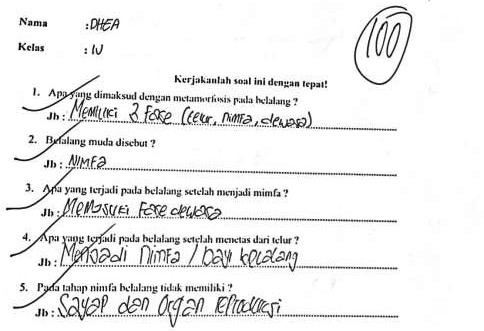 Nama : DHEA
100
Kelas : IV
Kerjakanlah soal ini dengan tepat!
1. Apa yang dimaksud dengan metamorfosis pada belalang ?
Jb : Memiliki 3 Fase (telur, nimfa, dewasa)
2. Belalang muda disebut ?
Jb : NiMFa
3. Apa yang terjadi pada belalang setelah menjadi mimfa ?
Jb : Memasuki Fase dewasa
4. Apa yang terjadi pada belalang setelah menetas dari telur ?
Jb : Menjadi nimfa / bayi belalang
5. Pada tahap nimfa belalang tidak memiliki ?
Jb : Sayap dan organ reproduksi